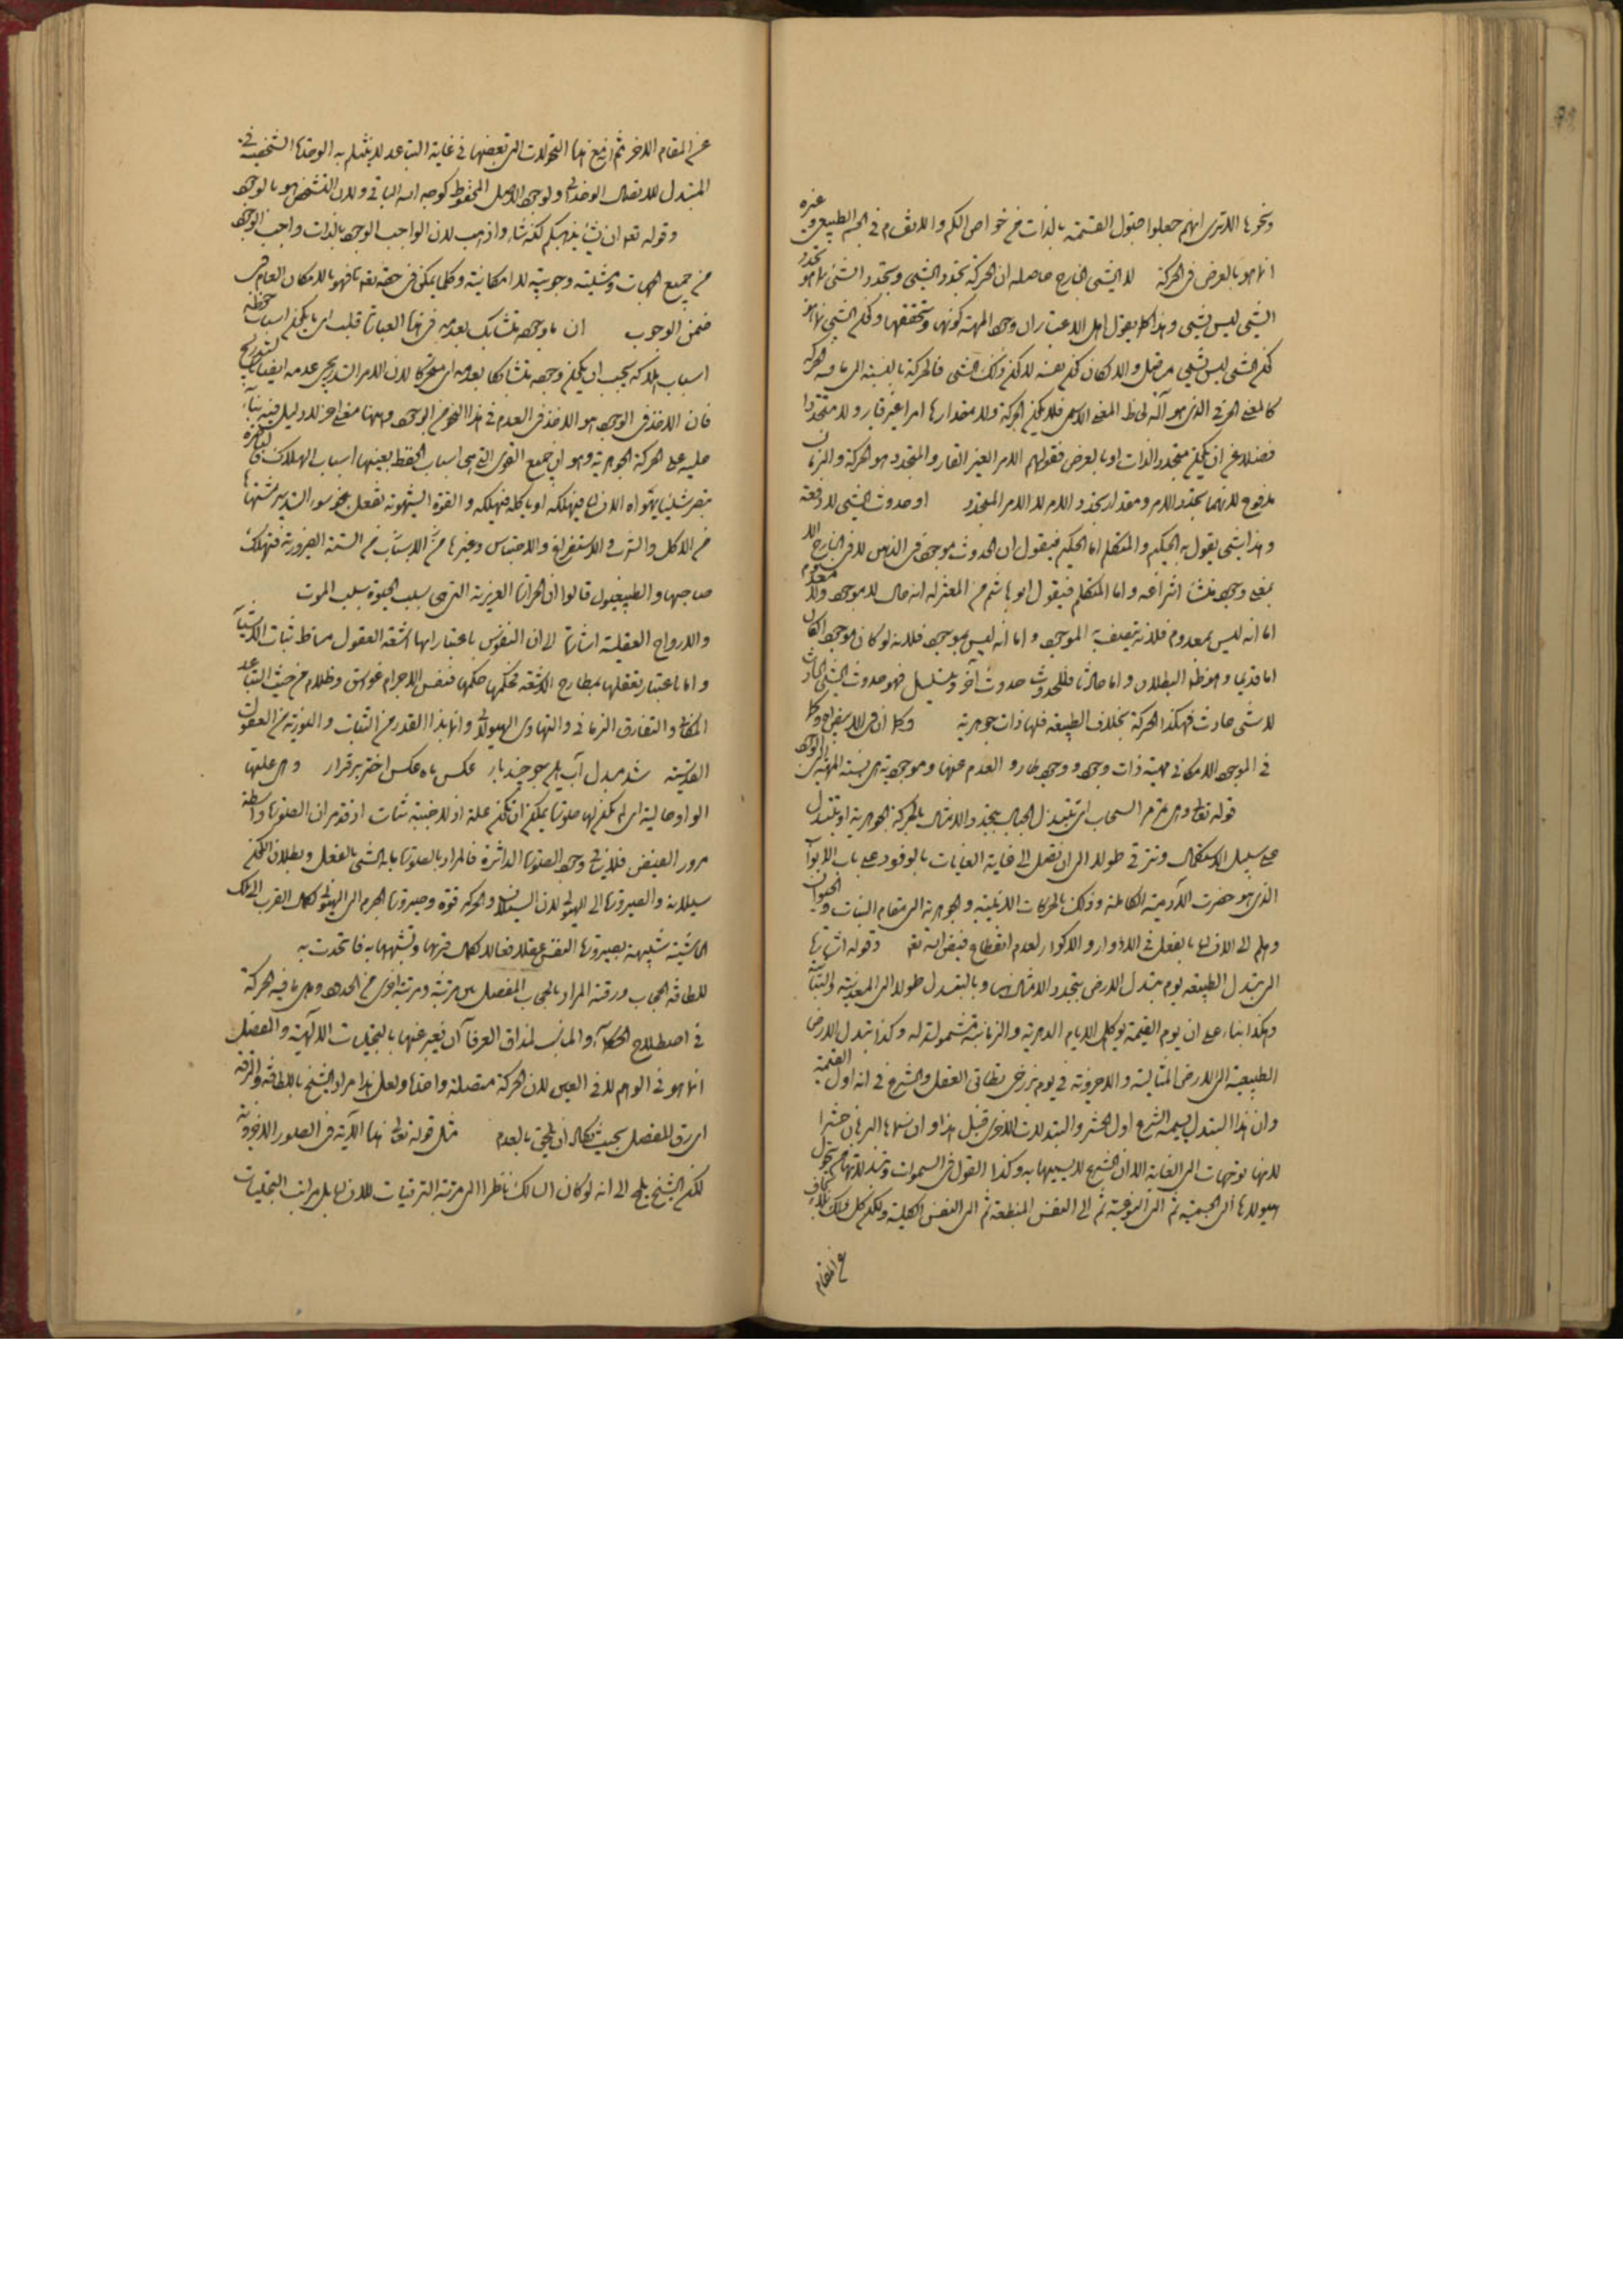 ونحوها الا ترى انهم جعلوا قبول القسمة بالذات من خواص الكم والانقسام فى الجسم الطبيعى وغيره
انما هو بالعرض فى الحركة لا الشىء الخارج حاصله ان الحركة تجدد الشىء وتجدد الشىء بما هو تجدد
الشىء ليس بشىء وهذا كما يقول اهل الاعتبار ان وجود المهية كونها وتحققها وكون الشىء بما هو
كون الشىء ليس بشىء والا لكان كون نفسه لا كون ذلك الشىء فالحركة بالنسبة الى ما فيه الحركة
كالمعنى الحرفى الذى هو آلة لحاظ المعنى الاسمى فلا يكون الحركة ولا مقدارها امرا غير قار ولا متجددا
فضلا عن ان يكون متجدد الذات او بالعرض فقولهم الامر الغير القار والمتجدد هو الحركة والزمان
مدفوع لانهما تجدد الامر ومقدار تجدد الامر لا الامر المتجدد او حدوث الشىء لا دفعة
وهذا شىء يقول به الحكيم والمتكلم اما الحكيم فيقول ان الحدوث موجود فى الذهن لا فى الخارج الا
بمعنى وجود منشأ انتزاعه واما المتكلم فيقول ابو هاشم من المعتزلة انه حال لا موجود ولا معدوم
اما انه ليس بمعدوم فلانه يتصف به الموجود واما انه ليس بموجود فلانه لو كان موجودا لكان
اما قديما وهو ظاهر البطلان واما حادثا فللحدوث حدوث آخر ويتسلسل فهو حدوث الشىء الحادث
لا شىء حادث فهكذا الحركة بخلاف الطبيعة فلها ذات جوهرية
فى الموجود الامكانى مهية ذات وجود ووجود طارد العدم عنها وموجودية هى نسبة المهية الى الوجود
قوله تعالى وهى تمر مر السحاب اى تتبدل الجبال بتجدد الامثال بالحركة الجوهرية او تتبدل
على سبيل الاستكمال وتترقى طولا الى ان تصل الى غاية الغايات بالوفود على باب الابواب
الذى هو حضرت الآدمية الكاملة وذلك بالحركات الاينية والجوهرية الى مقام النبات والحيوان
وهلم الى الانسان بالفعل فى الادوار والاكوار لعدم انقطاع فيض الله تعالى وقوله اشارة
الى تبدل الطبيعة يوم تبدل الارض بتجدد الامثال وبالتبدل طولا الى المعدنية والنباتية
وهكذا بناء على ان يوم القيمة يوم كل الايام الدهرية والزمانية مشمولة له وكذا تبدل الارض
الطبيعية الى الارض المثالية والاخروية فى يوم برزخى تطابق العقل والشرع فى انه اول القيمة
وان هذا التبدل يسميه الشرع اول الحشر والتبدلات الاخرى قبل هذا وان سماها البرهان حشرا
لانها توجهات الى الغاية الا ان الشرع لا يسميها به وكذا القول فى السموات
هيولاها الى الجسمية ثم الى النوعية ثم الى النفس المنطبعة ثم الى النفس الكلية ولكن كل
عن المقام
عن المقام الاخر ثم ان مع هذه التحولات التى بعضها فى غاية التباعد لا ينثلم به الوحدة الشخصية فى
المتبدل للاتصال الوحدانى ولوجود الاصل المحفوظ كوجه الله الباقى ولان التشخص هو بالوجود
وقوله تعالى ان يشأ يذهبكم لكنه شاء واذهب لان الواجب الوجود بالذات واجب الوجود
من جميع الجهات ومشيته وجوبية لا امكانية وكلما يمكن فى حقه تعالى فهو بالامكان العام فى
ضمن الوجوب ان ما وجوده تشابك بعدمه فى هذه العبارة قلب اى ما يكون اسباب حفظه
اسباب هلاكه يجب ان يكون وجوده متشابكا بعدمه اى متحركا لان الامر التدريجى عدمه ايضا بتدريج
فان الاخذ فى الوجود هو الاخذ فى العدم فى هذا النحو من الوجود وههنا معنى آخر لا دليل فيه بناء
عليه على الحركة الجوهرية وهو ان جميع القوى التى هى اسباب الحفظ بعينها اسباب الهلاك
تبصر شيئا يهواه الانسان فيهلكه او يأكله فيهلكه والقوة الشهوية تفعل بنحو سوء التدبير مشتهاها
من الاكل والشرب والاستفراغ والاحتباس وغيرها من الاسباب من الستة الضرورية فتهلك
صاحبها والطبيعيون قالوا ان الحرارة الغريزية التى هى سبب الحيوة سبب الموت
والارواح العقلية اشارة الى ان النفوس باعتبار انها اشعة العقول مناط ثبات
واما باعتبار تعلقها بمطارح الاشعة فحكمها حكمها فنفس الاجرام غواسق وظلام من حيث التباعد
المكانى والتفارق الزمانى والتهاوى الهيولانى وانما هذا القدر من الثبات والنورية من العقول
القدسية شد مبدل آب اين جو چند بار عكس ماه عكس اختر برقرار وهى علتها
الواو حالية اى لم تكن لها صورة يمكن ان تكون علة اذ الاجنبية شأت
مرور الفيض فلا ينافى وجود الصورة الداثرة فالمراد بالصورة ما به الشىء بالفعل وبطلان الكون
سيلانه والصيرورة الى الهيولى لان السيلان والحركة قوة وصيرورة الجرم الى الهيولى كمال القرب الى تلك
الحاشية شبيهة بصيرورة النفس عقلا فعالا لكمال قربها وتشبهها به فاتحدت به
للطافة الحجاب ورقته المراد بالحجاب المفصل بين مرتبة ومرتبة اخرى من الحدود وهى ما فيه الحركة
فى اصطلاح الحكماء والمناسب لمذاق العرفاء ان نعبر عنها بالتجليات الالهية والفصل
انما هو فى الوهم لا فى العين لان الحركة متصلة واحدة ولعل هذا مراد الشيخ باللطافة والرقة
اى رق المفصل بحيث كاد ان يلحق بالعدم مثل قوله تعالى هذه الآية فى الصور الاخروية
لكن الشيخ يلمح الى انه لو كان السالك ناظرا الى مرتبة الترقيات للانسان بل مراتب التجليات